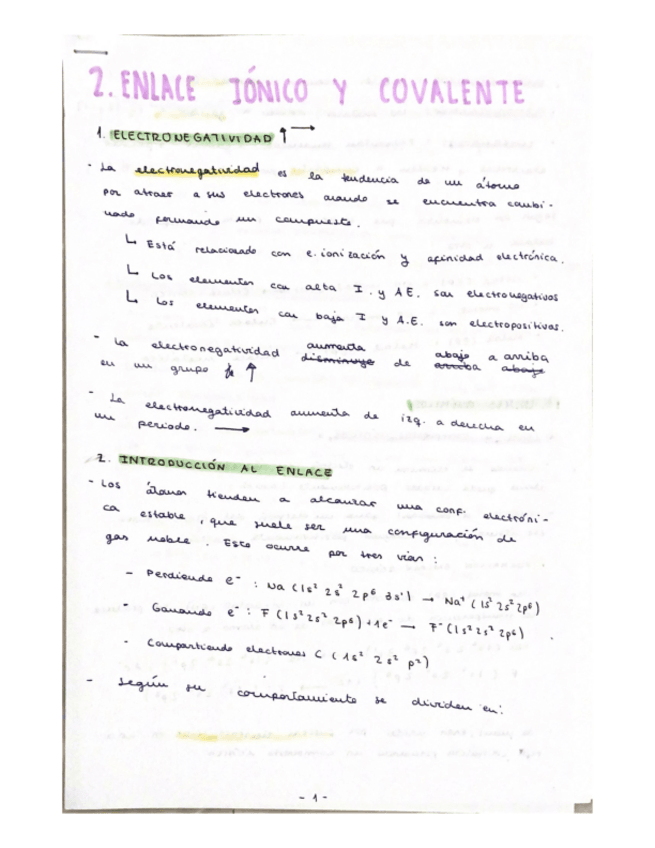 2. ENLACE IÓNICO Y COVALENTE
1. ELECTRONEGATIVIDAD ↑ →
- La electronegatividad es la tendencia de un átomo
por atraer a sus electrones cuando se encuentra combi-
nado formando un compuesto.
↳ Está relacionado con e. ionización y afinidad electrónica.
↳ Los elementos con alta I. y A.E. son electronegativos
↳ Los elementos con baja I y A.E. son electropositivos.
- La electronegatividad aumenta disminuye de abajo a arriba arriba abajo
en un grupo ↑
- La electronegatividad aumenta de izq. a derecha en
un periodo. →
2. INTRODUCCIÓN AL ENLACE
- Los átomos tienden a alcanzar una conf. electróni-
ca estable, que suele ser una configuración de
gas noble. Esto ocurre por tres vías:
- Perdiendo e⁻ : Na (1s² 2s² 2p⁶ 3s¹) → Na⁺ (1s² 2s² 2p⁶)
- Ganando e⁻ : F (1s² 2s² 2p⁶) + 1e⁻ → F⁻ (1s² 2s² 2p⁶)
- Compartiendo electrones C (1s² 2s² p²)
- Según su comportamiento se dividen en:
- 1 -